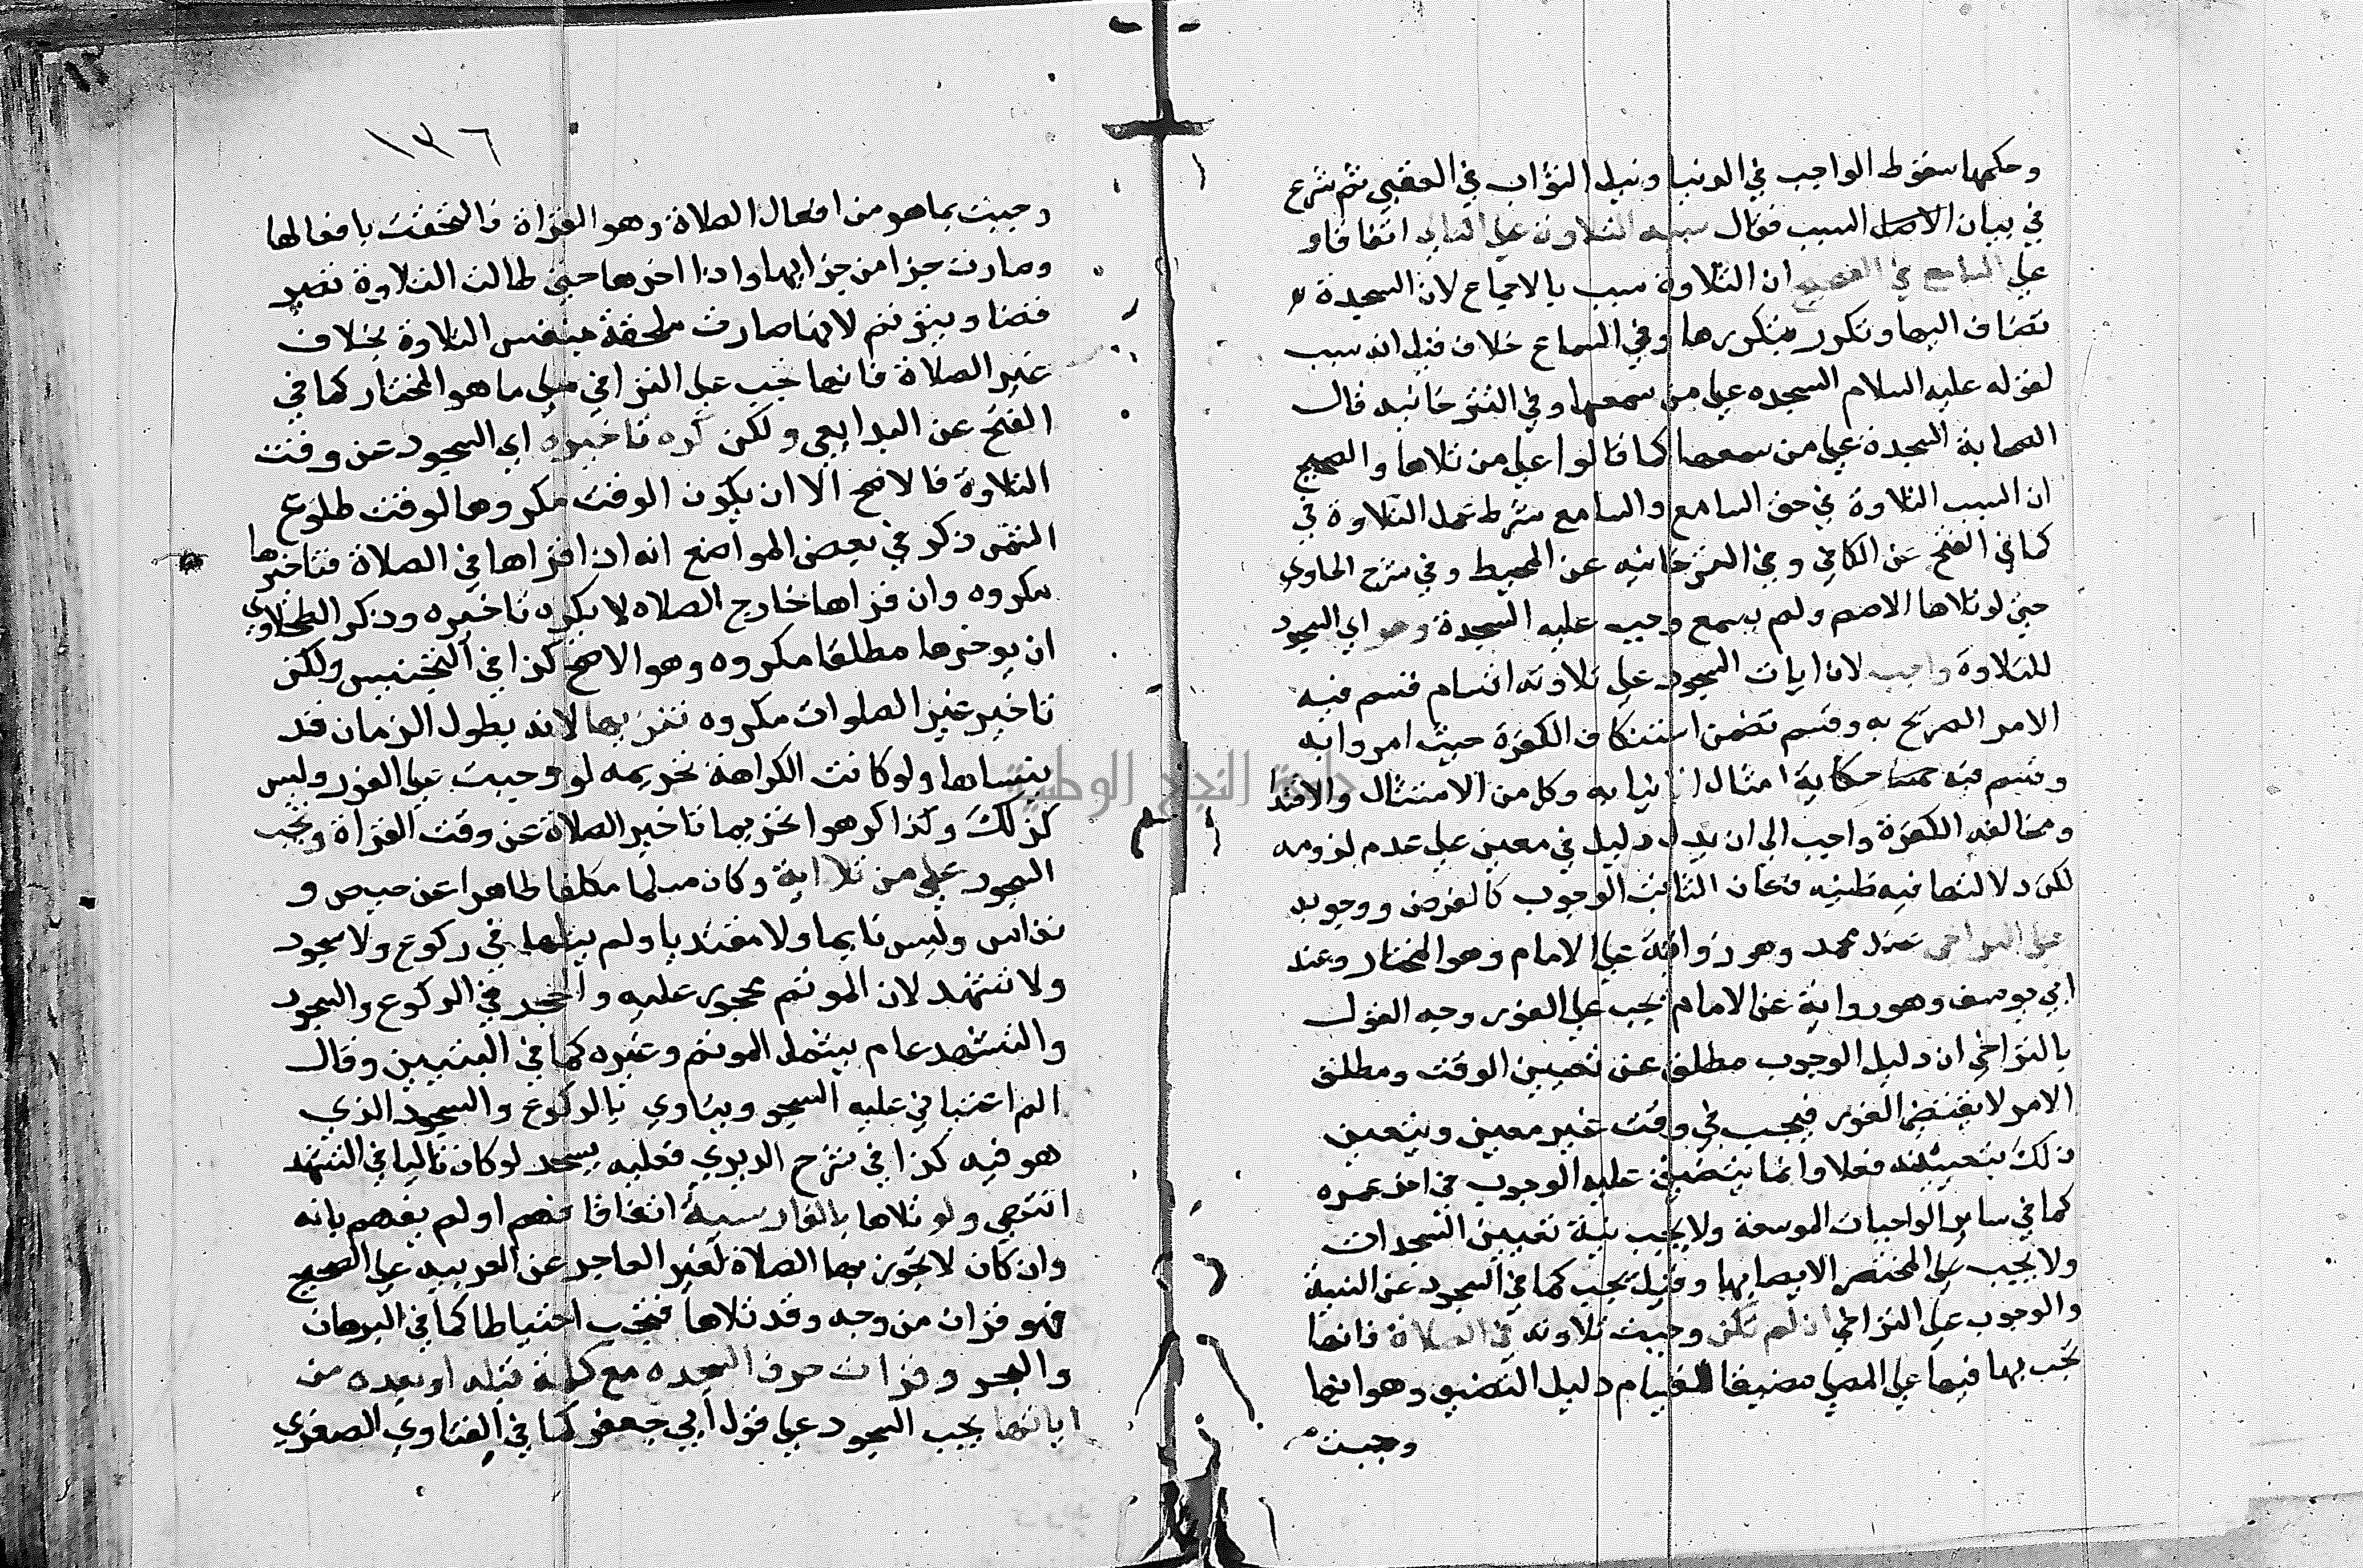 وحكمها سقوط الواجب في الدنيا ونيل الثواب في العقبي ثم شرع
في بيان السبب فقال سببه التلاوة علي التالي اتفاقا و
علي السامع في الصحيح ان التلاوة سبب بالاجماع لان السجدة
تضاف اليها وتكرر بتكررها وفي السماع خلاف قيل انه سبب
لقوله عليه السلام السجده علي من سمعها وفي التترخانيه قال
الصحابة السجدة علي من سمعها كما قالوا علي من تلاها والصحيح
ان السبب التلاوة في حق السامع والسامع شرط عمل التلاوة في
كما في الفتح عن الكافي وفي التترخانيه عن المحيط وفي شرح الحاوي
حتي لو تلاها الاصم ولم يسمع وجب عليه السجدة وهو اي السجود
للتلاوة واجب لان ايات السجود علي تلاوته اقسام قسم فيه
الامر الصريح به وقسم تضمن استنكاف الكفرة حيث امروا به
وقسم فيه حكاية امتثال الانبيا به وكل من الامتثال والاقتدا
ومخالفه الكفرة واجب الي ان يدل دليل في معين علي عدم لزومه
لكن دلالتها فيه ظنيه فكان الثابت الوجوب كالفرض ووجوبه
علي التراخي عند محمد وهو رواية علي الامام وهو المختار وعند
ابي يوسف وهو رواية عن الامام يجب علي الفور وجه القول
بالتراخي ان دليل الوجوب مطلق عن تعيين الوقت ومطلق
الامر لا يقتضي الفور فيجب في وقت غير معين ويتعين
ذلك بتعيينه فعلا وانما يتضيق عليه الوجوب في اخر عمره
كما في ساير الواجبات الموسعة ولا يجب نية تعيين السجدات
ولا يجب علي المحتضر الايصا بها وقيل يجب كما في السجود عن القنية
والوجوب علي التراخي ان لم تكن وجبت تلاوته في الصلاة فانها
تجب بها فيها علي المصلي مضيقا لقيام دليل التضيق وهو انها
وجبت
١٣٦
وجبت بما هو من افعال الصلاة وهو القراة فالتحقت بافعالها
وصارت جزا من جزايها واذا اخرها حتي طالت التلاوة تصير
قضا وياثم لانها صارت ملحقة بنفس التلاوة بخلاف
غير الصلاة فانها تجب علي التراخي علي ما هو المختار كما في
الفتح عن البدايعي ولكن كره تاخيره اي السجود عن وقت
التلاوة فالاصح الا ان يكون الوقت مكروها لوقت طلوع
الشمس ذكر في بعض المواضع انه اذا قراها في الصلاة فتاخيرها
مكروه وان قراها خارج الصلاه لا يكره تاخيره وذكر الطحاوي
ان يوخرها مطلقا مكروه وهو الاصح كذا في التجنيس ولكن
تاخير غير الصلوات مكروه تنزيها لانه بطول الزمان قد
ينساها ولو كانت الكراهة تحريمه لو وجبت علي الفور وليس
كذلك وكذا كرهوا تحريما تاخير الصلاة عن وقت القراة وتجب
السجود علي من تلا اية وكان مسلما مكلفا طاهرا عن حيض و
نفاس وليس نايما ولا مقتديا ولم يتلها في ركوع ولا سجود
ولا تشهد لان الموتم محجور عليه والحجر في الركوع والسجود
والتشهد عام يشمل الموتم وغيره كما في التبيين وقال
عليه السجود ويتادي بالركوع والسجود الذي
هو فيه كذا في شرح الديري فعليه يسجد لو كان تاليا في التشهد
انتهي ولو تلاها بالفارسية اتفاقا فهم او لم يفهم بانه
وان كان لا تجوز بها الصلاة لغير العاجز عن العربيه علي الصحيح
فهو قران من وجه وقد تلاها فتجب احتياطا كما في البرهان
والبحر وقرات حرف السجده مع كلمة قبله او بعده من
اياتها يجب السجود علي قول ابي جعفر كما في الفتاوي الصغري
جامعة النجاح الوطنية